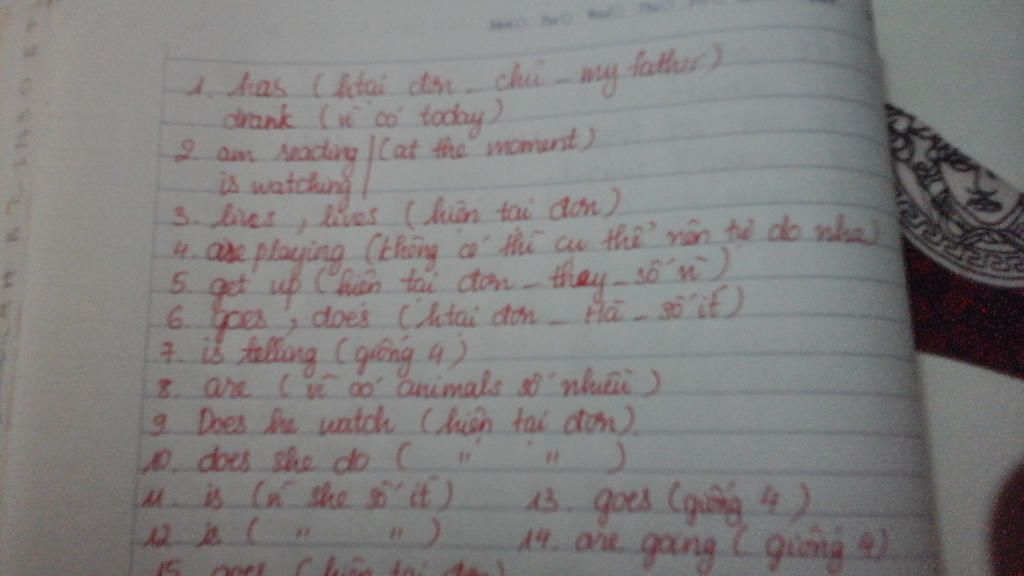 1. has (htại đơn - chủ - my father)
drank (vì có today)
2 am reading | (at the moment)
is watching |
3. lives, lives (hiện tại đơn)
4. are playing (không có thì cụ thể nên tự do nha)
5. get up (hiện tại đơn - they - số n`)
6. goes, does (htại đơn - Hà - số ít)
7. is telling (giống 4)
8. are (vì có animals số nhiều)
9. Does he watch (hiện tại đơn).
10. does she do ( " " )
11. is (vì she số ít) 13. goes (giống 4)
12 is ( " " ) 14. are going (giống 4)
15. goes (hiện tại đơn)